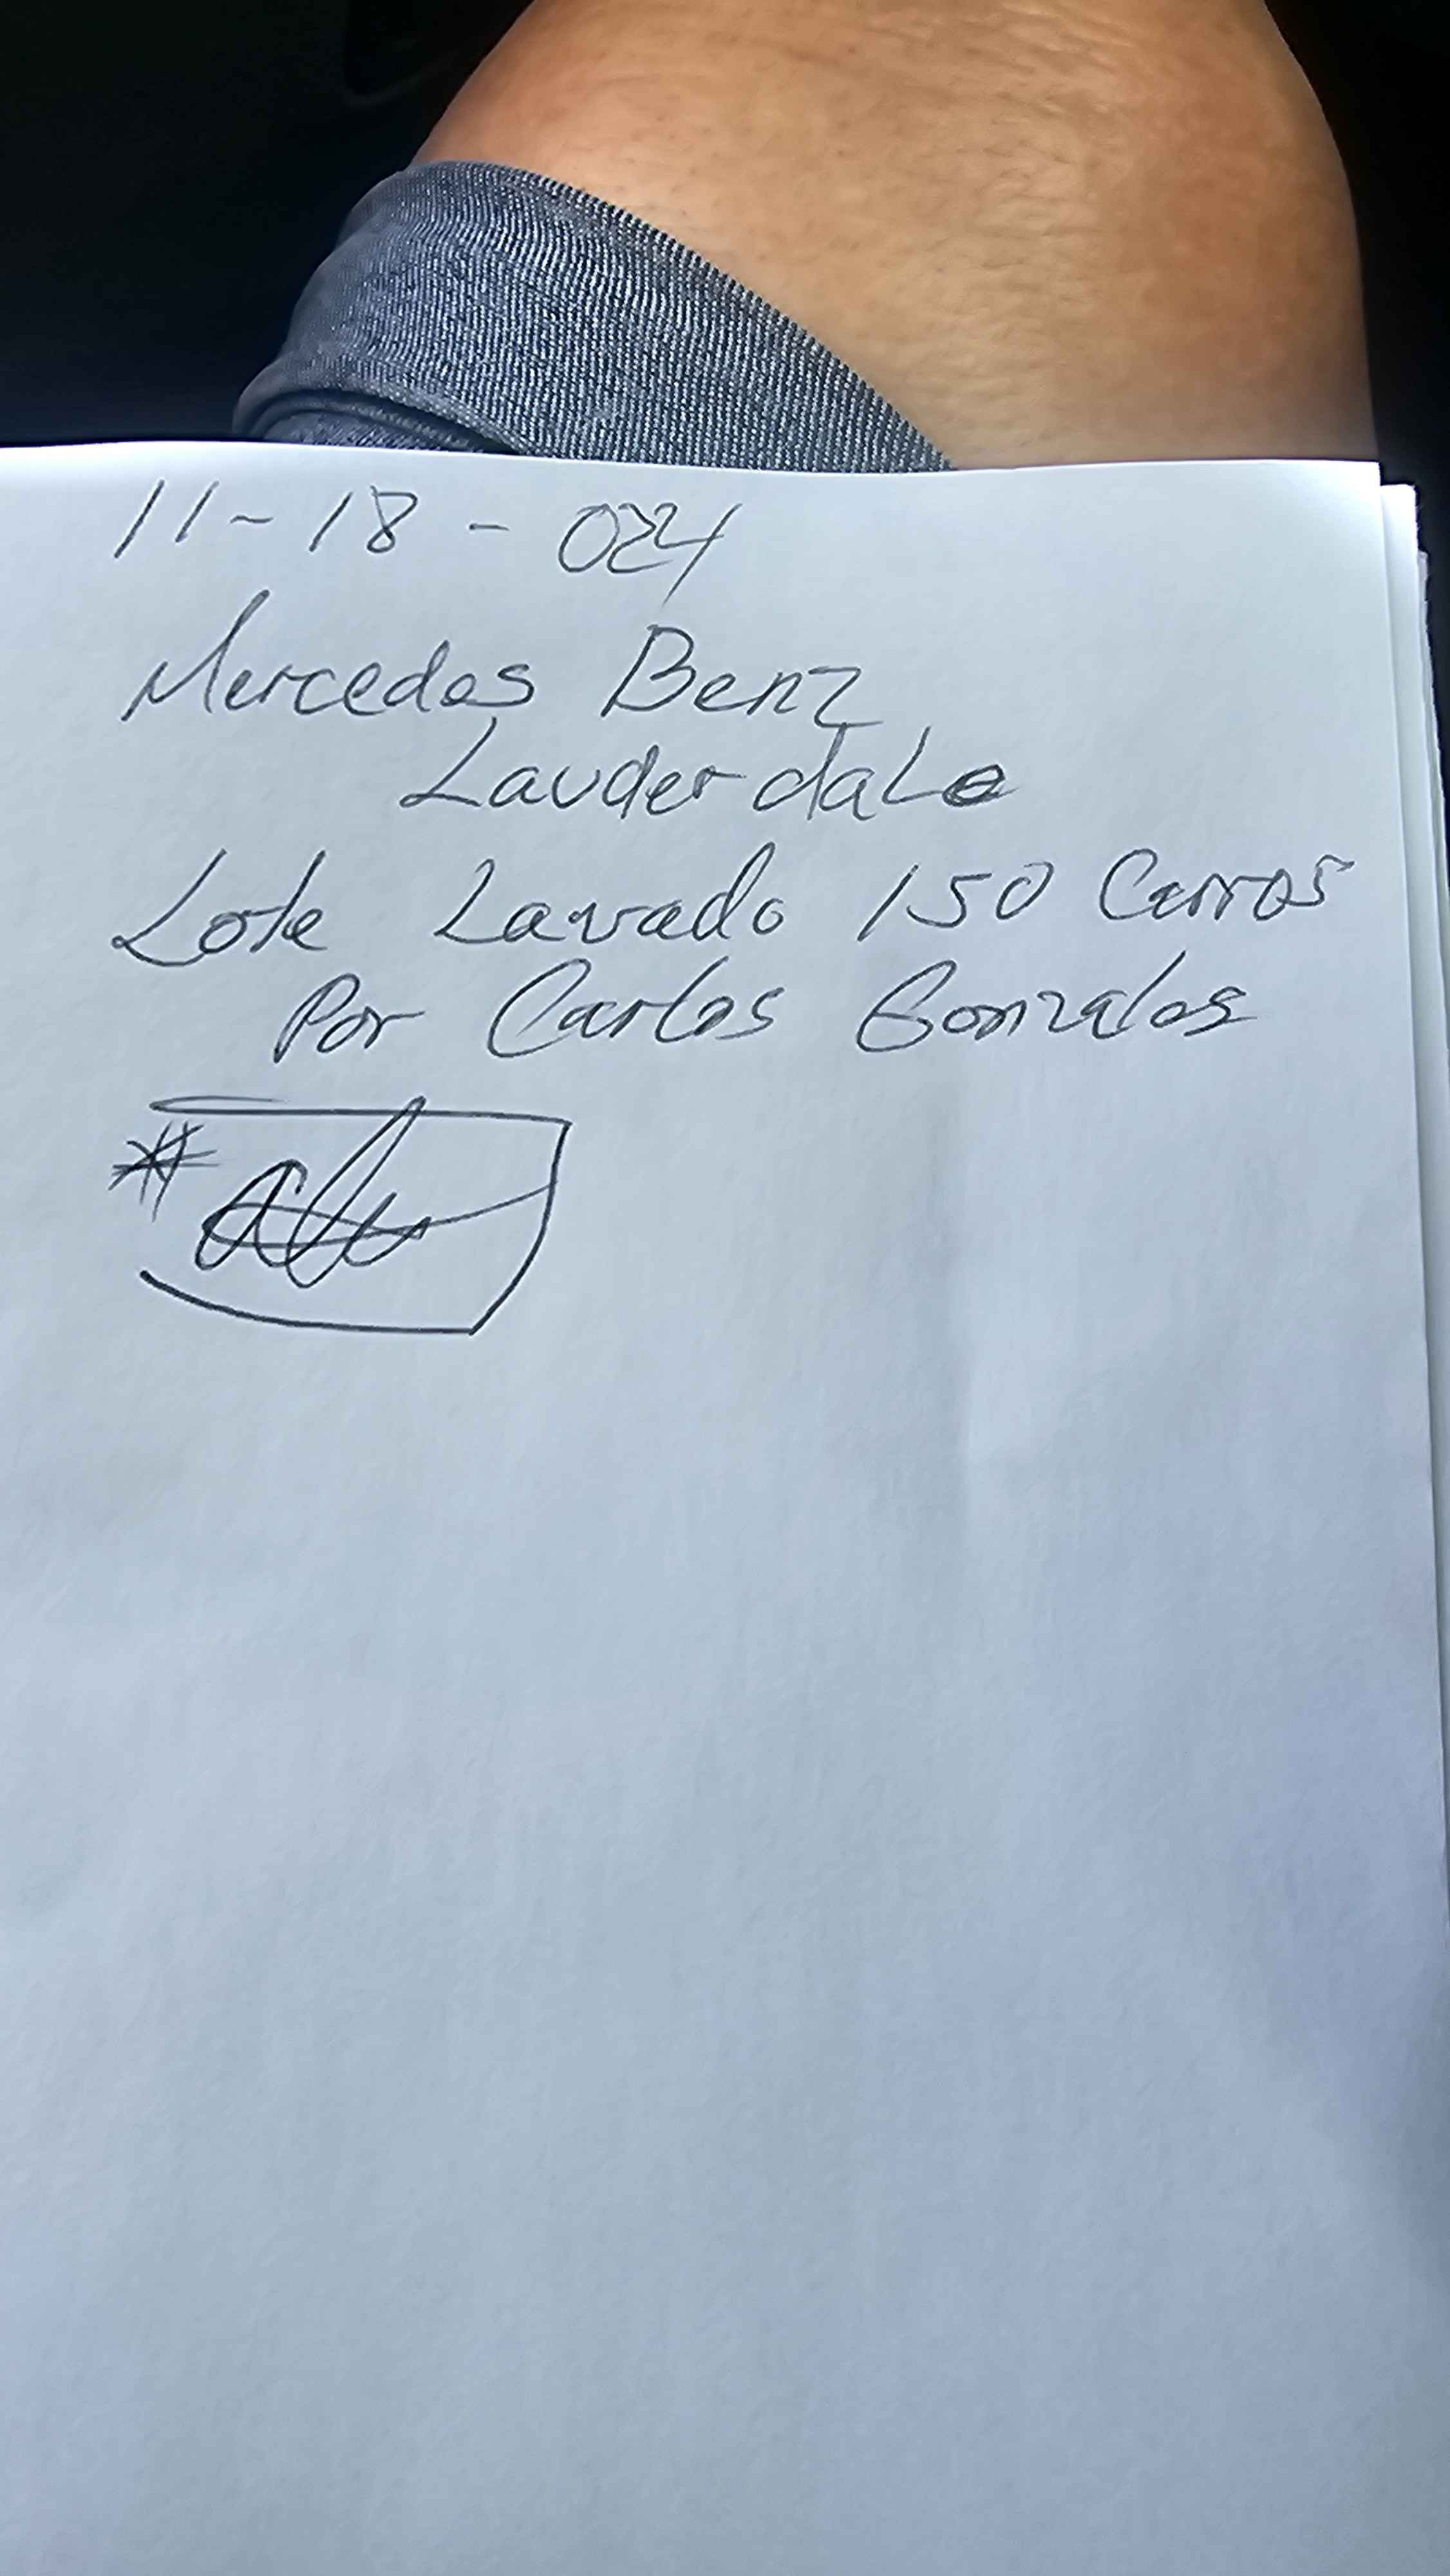 11-18-024
Mercedes Benz
Lauderdale
Lote Lavado 150 Carros
Por Carlos Gonzales
#